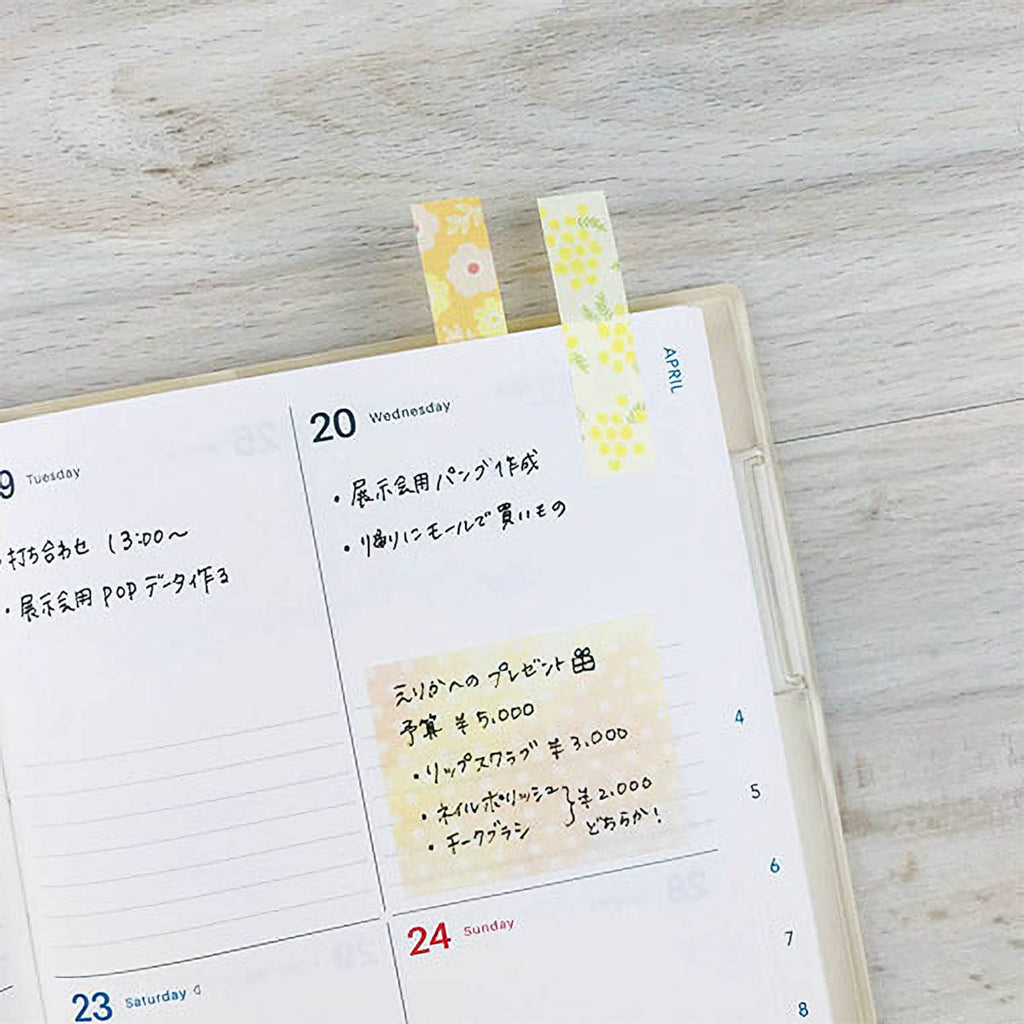 APRIL
9 Tuesday
打ち合わせ 13:00〜
・展示会用POPデータ作る
20 Wednesday
・展示会用パンフ作成
・帰りにモールで買いもの
えりかへのプレゼント
予算 ¥5,000
・リップスクラブ ¥3,000
・ネイルポリッシュ
・チークブラシ
} ¥2,000
どちらか!
4
5
6
7
8
23 Saturday
24 Sunday